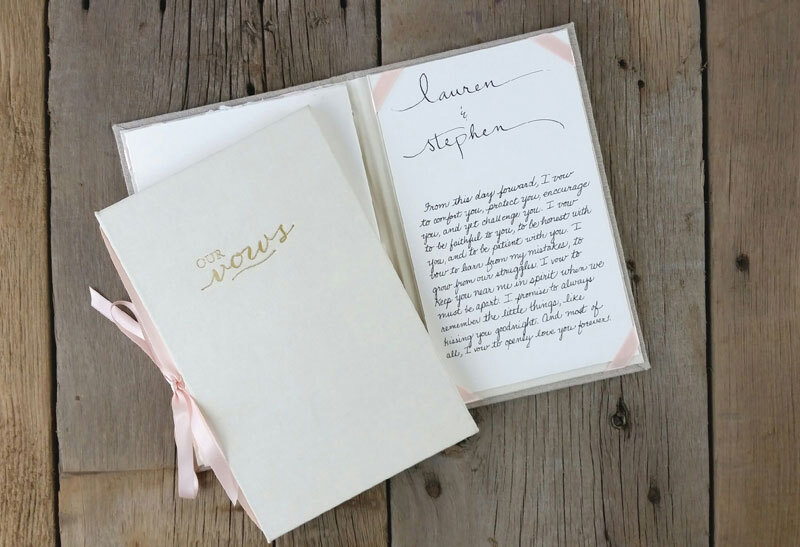 OUR
vows
lauren
&
stephen
From this day forward, I vow
to comfort you, protect you, encourage
you, and yet challenge you. I vow
to be faithful to you, to be honest with
you, and to be patient with you. I
vow to learn from my mistakes, to
grow from our struggles. I vow to
keep you near me in spirit when we
must be apart. I promise to always
remember the little things, like
kissing you goodnight. And most of
all, I vow to openly love you forever.